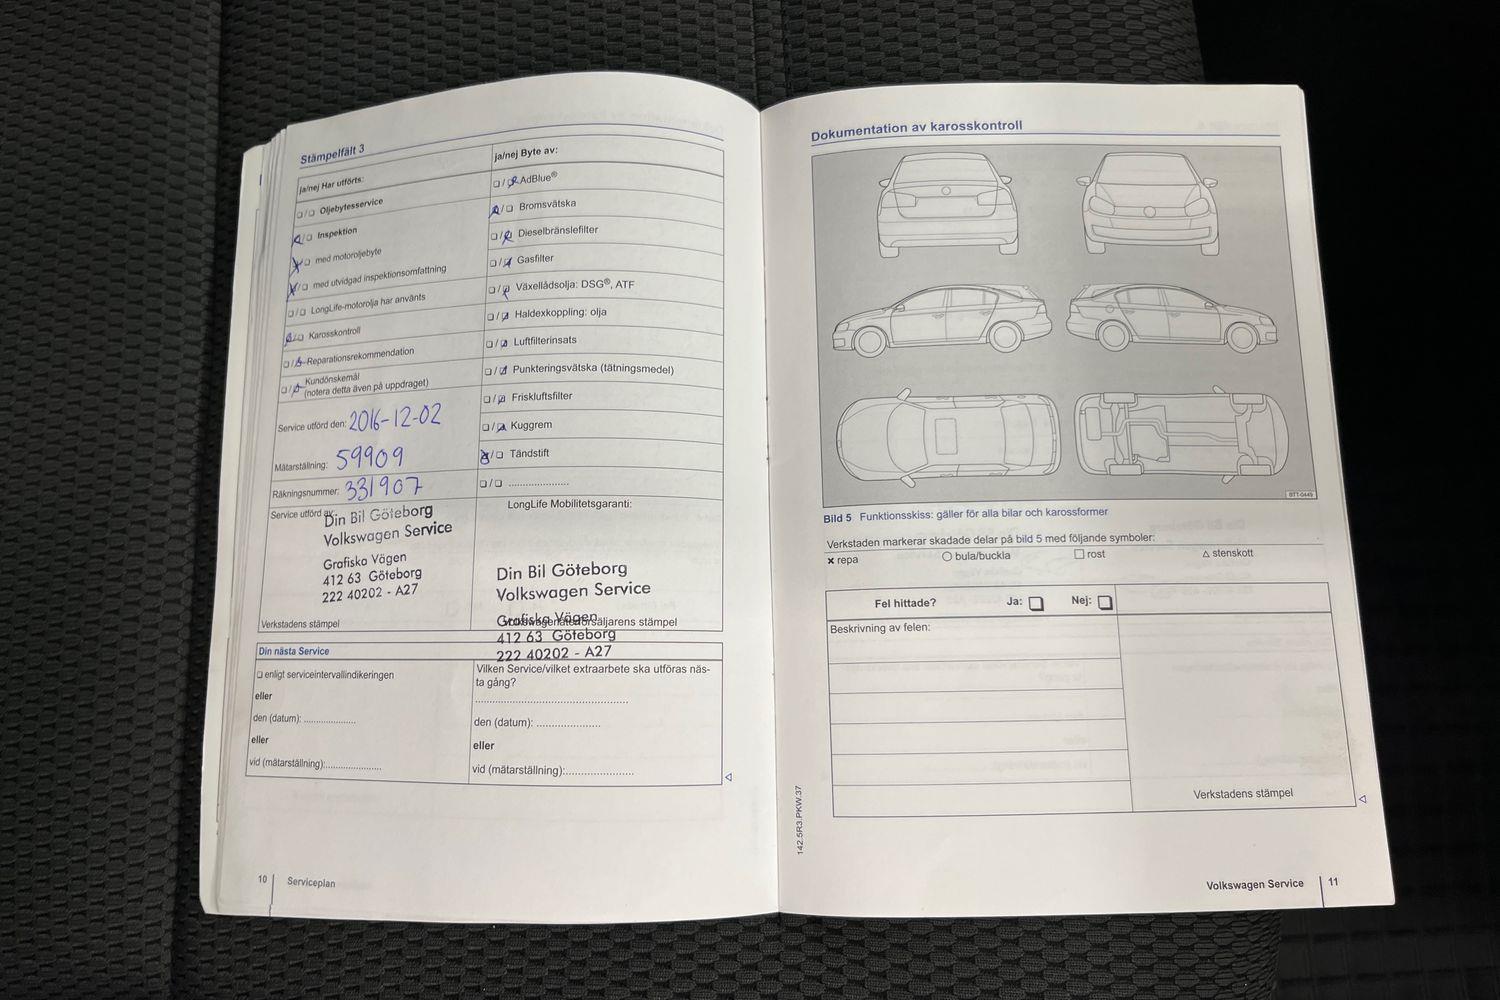 Stämpelfält 3
ja/nej Har utförts:
Oljebytesservice
Inspektion
med motoroljebyte
med utvidgad inspektionsomfattning
LongLife-motorolja har använts
Karosskontroll
Reparationsrekommendation
Kundönskemål
(notera detta även på uppdraget)
Service utförd den: 2016-12-02
Mätarställning: 59909
Räkningsnummer: 331907
Service utförd av:
Din Bil Göteborg
Volkswagen Service
Grafiska Vägen
412 63 Göteborg
222 40202 - A27
Verkstadens stämpel
ja/nej Byte av:
AdBlue®
Bromsvätska
Dieselbränslefilter
Gasfilter
Växellådsolja: DSG®, ATF
Haldexkoppling: olja
Luftfilterinsats
Punkteringsvätska (tätningsmedel)
Friskluftsfilter
Kuggrem
Tändstift
LongLife Mobilitetsgaranti:
Din Bil Göteborg
Volkswagen Service
Grafiska Vägen
stämpel
412 63 Göteborg
222 40202 - A27
Din nästa Service
enligt serviceintervallindikeringen
eller
den (datum): ....................
eller
vid (mätarställning):....................
Vilken Service/vilket extraarbete ska utföras näs-
ta gång?
den (datum): ....................
eller
vid (mätarställning):....................
10 Serviceplan
Dokumentation av karosskontroll
BTT-0449
Bild 5 Funktionsskiss: gäller för alla bilar och karossformer
Verkstaden markerar skadade delar på bild 5 med följande symboler:
× repa ○ bula/buckla □ rost △ stenskott
Fel hittade? Ja: Nej:
Beskrivning av felen:
Verkstadens stämpel
142.5R3.PKW.37
Volkswagen Service 11